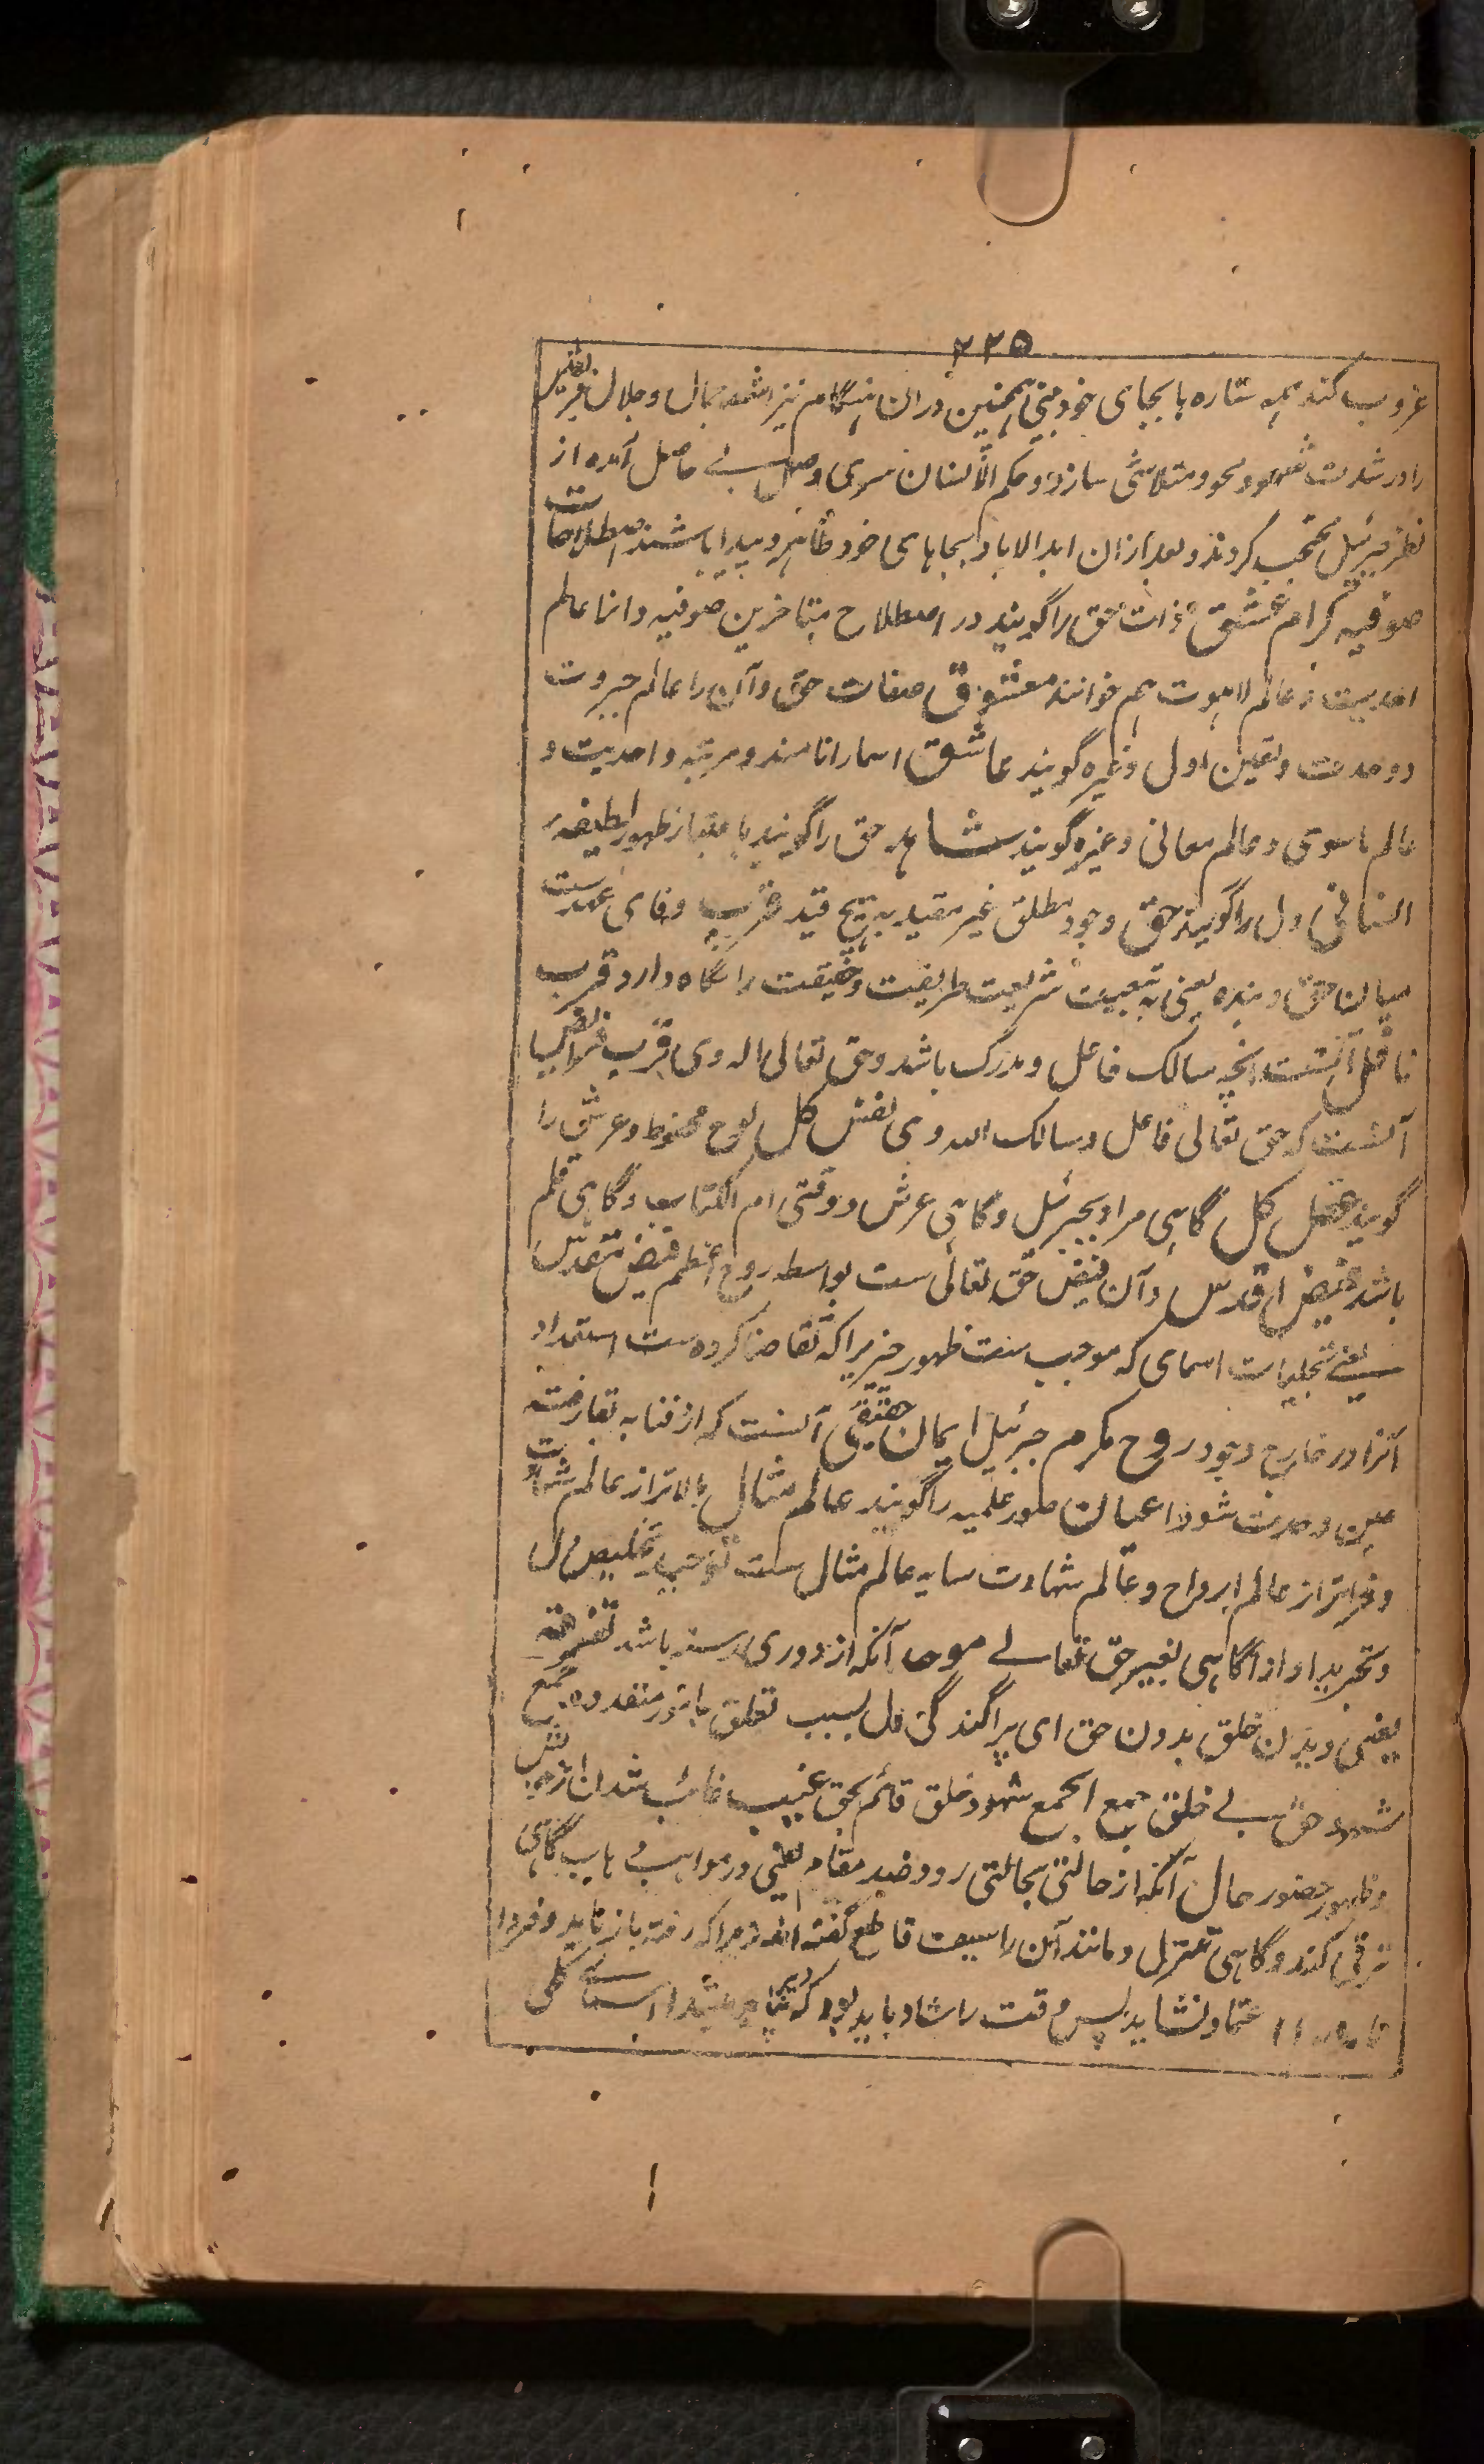 ۲۲۵
غروب کند همه ستاره ها بجای خود مبنی همچنین دران هنگام نیز اشعه جمال و جلال
را در شدت شهود محو و متلاشی سازد و حکم الانسان سری و صل بے حاصل آمده از
نظر جبرئیل محتجب کردند و بعد ازان ابد الاباد بجاهای خود ظاهر و پیدا باشند اصطلاحات
صوفیه کرام عشق ذات حق را گویند در اصطلاح متاخرین صوفیه و انرا عالم
احدیت و عالم لاهوت هم خوانند معشوق صفات حق و آن را عالم جبروت
و وحدت و تعین اولی و غیره گویند عاشق اسما را نامند و مرتبه واحدیت و
عالم ناسوتی و عالم معانی و غیره گویند شاهد حق را گویند باعتبار ظهور لطیفه
انسانی دل را گویند حق وجود مطلق غیر مقید به هیچ قید قرب وفای عهدست
میان حق و بنده یعنی به تبعیت شریعت طریقت و حقیقت را نگاه دارد قرب
نافل آنست انچه سالک فاعل و مدرک باشد و حق تعالی اله وی قرب فرائض
آنست که حق تعالی فاعل و سالک اله وی نفس کل لوح محفوظ و عرش را
گویند عقل کل گاهی مراد جبرئیل و گاهی عرش و وقتی ام الکتاب و گاهی قلم
باشد فیض اقدس و آن فیض حق تعالی ست بواسطه روح اعظم فیض مقدس
یعنے تجلیات اسمای که موجب ست ظهور چیزیرا که تقاضا کرده ست استعداد
آنرا در خارج وجود روح مکرم جبرئیل ایمان حقیقی آنست که از فنا به بقا رفته
عین وحدت شود اعیان صور علمیه را گویند عالم مثال بالاتر از عالم شهادت
و فروتر از عالم ارواح و عالم شهادت سایه عالم مثال ست توحید تخلیص دل
و تجرید او از آگاهی بغیر حق تعالے موحد آنکه از دوری رسته باشد تفرقه
یعنی دیدن خلق بدون حق ای پراگندگی دل بسبب تعلق بامور متعدده جمع
شهود حق بے خلق جمع الجمع شهود خلق قائم بحق غیبت غائب شدن از
و ظهور حضور حال آنکه از حالتی بحالتی رود ضد مقام یعنی در مواهب گاهی
ترقی کند و گاهی تنزل و مانند آن را سیف قاطع گفته اند زیرا که رفته باز نیاید و فردا
اعتماد نشاید پس وقت را شاد باید بود که